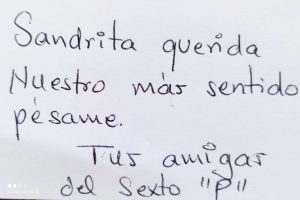 Sandrita querida
Nuestro más sentido
pésame.
Tus amigas
del Sexto "P"